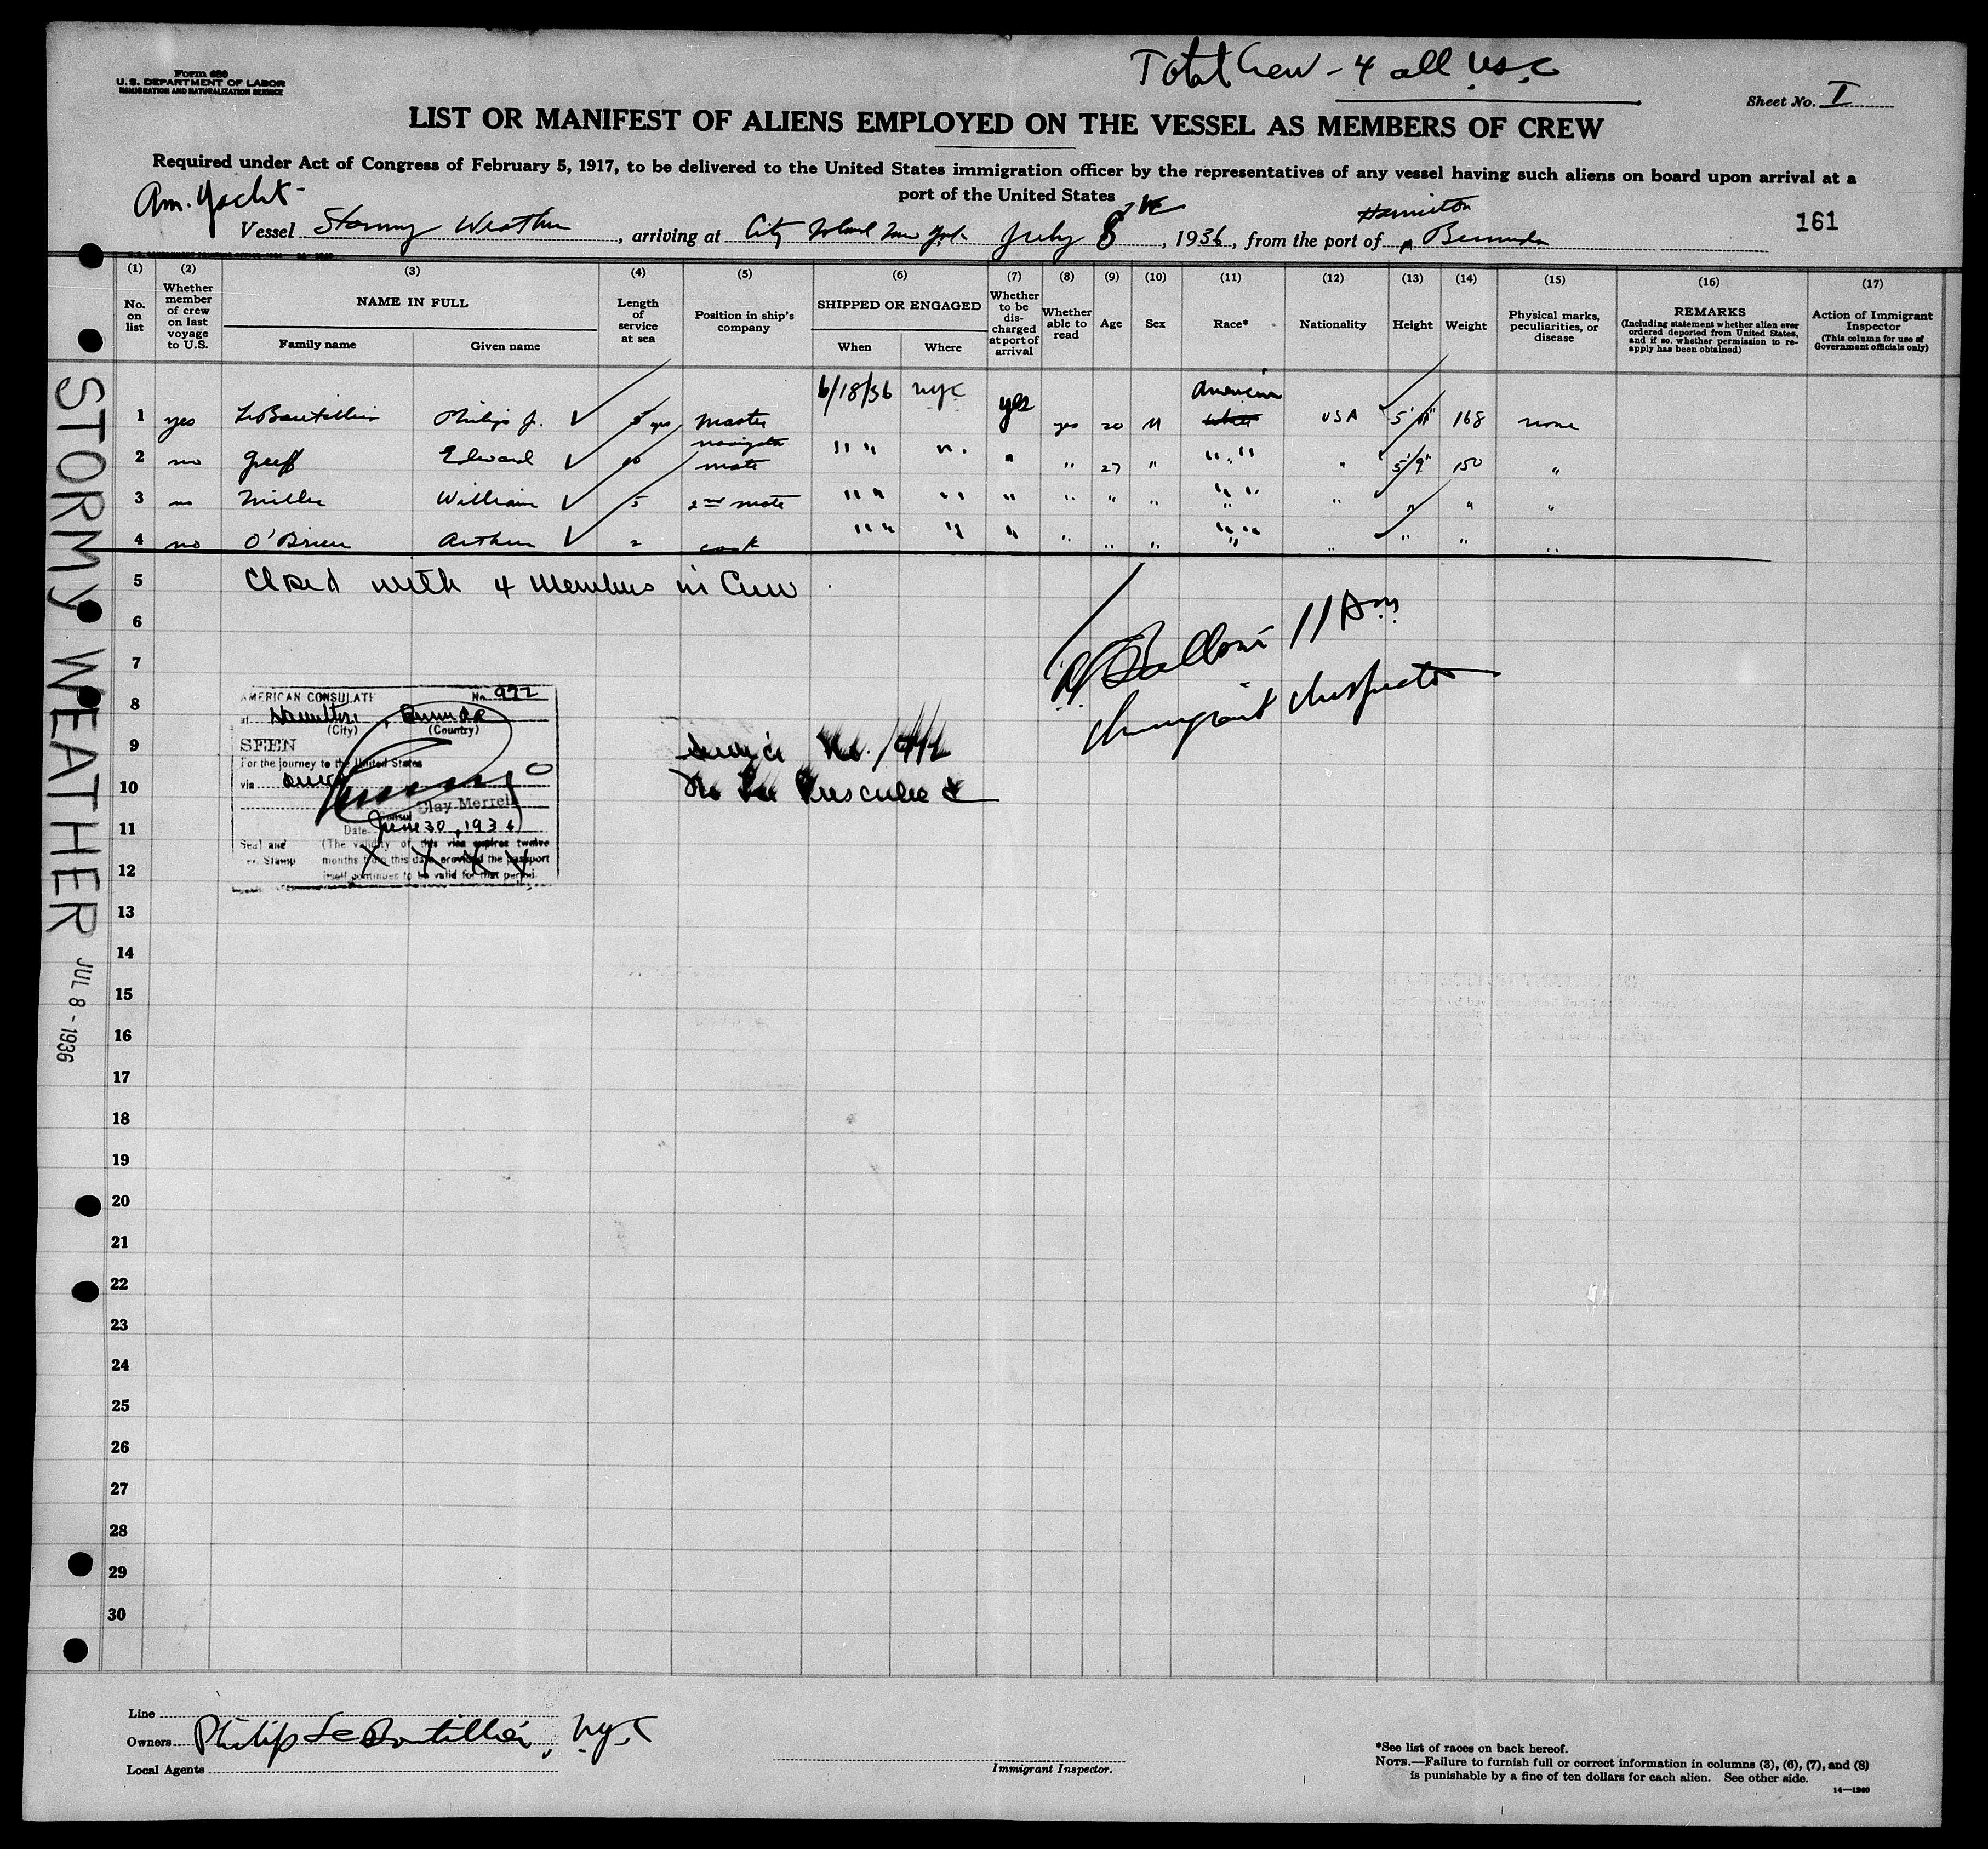 Total Crew - 4 all U.S.C
Form 680
U. S. DEPARTMENT OF LABOR
IMMIGRATION AND NATURALIZATION SERVICE
Sheet No. I
LIST OR MANIFEST OF ALIENS EMPLOYED ON THE VESSEL AS MEMBERS OF CREW
Required under Act of Congress of February 5, 1917, to be delivered to the United States immigration officer by the representatives of any vessel having such aliens on board upon arrival at a
port of the United States
Am. Yacht-
Vessel Stormy Weather, arriving at City Island New York July 8th, 1936, from the port of Hamilton Bermuda
161
(1) (2) (3) (4) (5) (6) (7) (8) (9) (10) (11) (12) (13) (14) (15) (16) (17)
No. on list
Whether member of crew on last voyage to U.S.
NAME IN FULL
Family name
Given name
Length of service at sea
Position in ship's company
SHIPPED OR ENGAGED
When
Where
Whether to be discharged at port of arrival
Whether able to read
Age
Sex
Race*
Nationality
Height
Weight
Physical marks, peculiarities, or disease
REMARKS
(Including statement whether alien ever ordered deported from United States, and if so, whether permission to re-apply has been obtained)
Action of Immigrant Inspector
(This column for use of Government officials only)
1 yes LeBoutillier Philip J. 5 yrs master 6/18/36 NYC yes yes 20 M American USA 5' 11" 168 none
2 no Greeff Edward 10 navigator mate " " " " " 27 " " " " 5' 9" 150 "
3 no Miller William 5 2nd mate " " " " " " " " " " " " " "
4 no O'Brien Arthur 2 cook " " " " " " " " " " " " " "
5 Closed with 4 Members in Crew
6
7
8
9
10
11
12
13
14
15
16
17
18
19
20
21
22
23
24
25
26
27
28
29
30
11 Am
Immigrant Inspector
AMERICAN CONSULATE No. 972
at Hamilton, Bermuda
(City) (Country)
SEEN
For the journey to the United States
via direct
Clay Merrell
Consul
Date June 30, 1936
Seal and
Stamp
(The validity of this visa expires twelve
months from this date provided the passport
itself continues to be valid for that period
Service No. 972
No Fee Prescribed
STORMY WEATHER
JUL 8 - 1936
Line
Owners Philip Le Boutillier, N.Y.C
Local Agents
Immigrant Inspector.
*See list of races on back hereof.
NOTE.—Failure to furnish full or correct information in columns (3), (6), (7), and (8)
is punishable by a fine of ten dollars for each alien. See other side.
14—1240